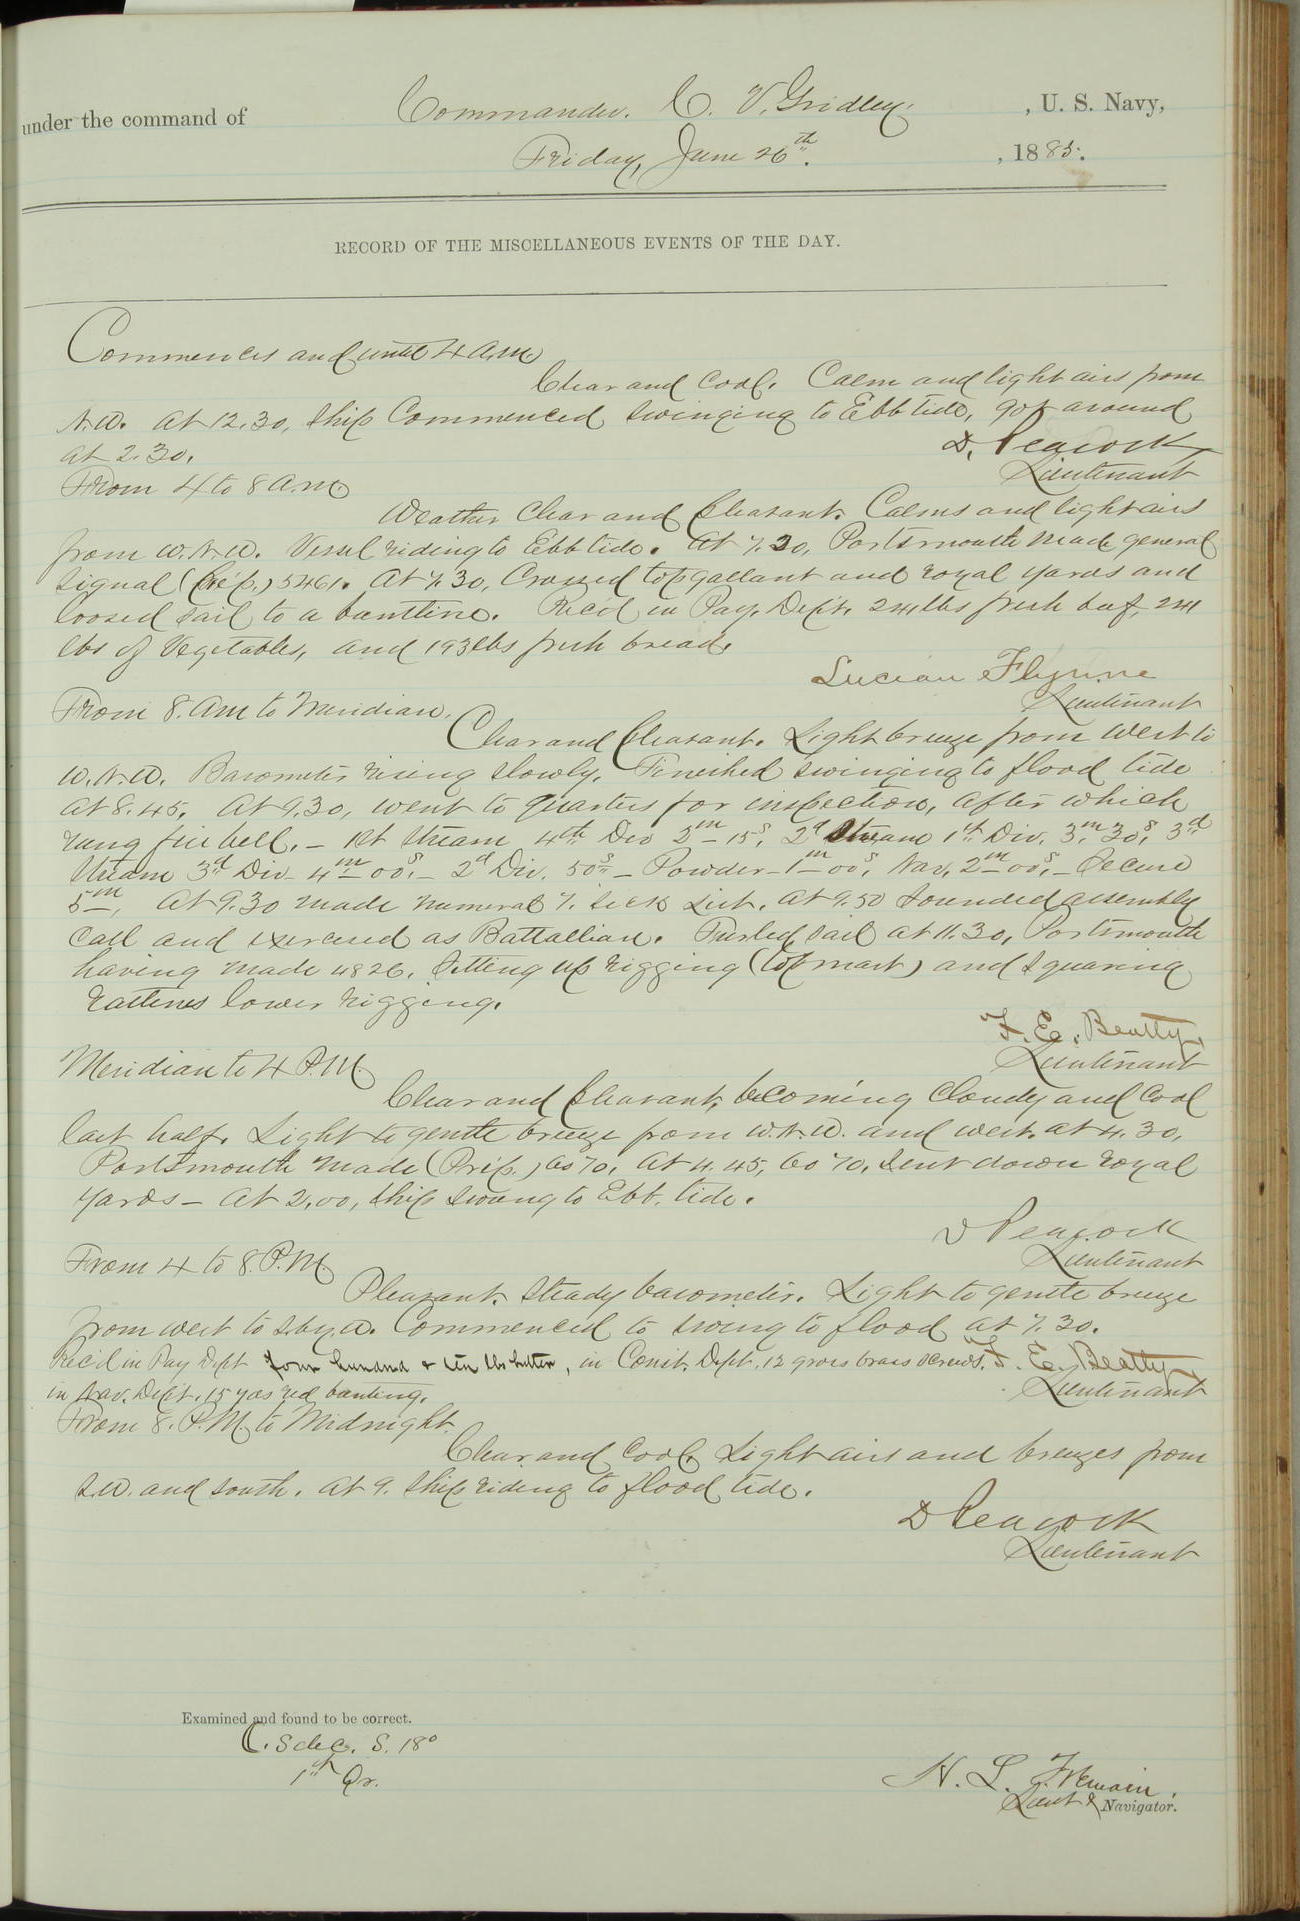 under the command of Commander. C. V. Gridley. , U. S. Navy,
Friday, June 26th. , 1885.
RECORD OF THE MISCELLANEOUS EVENTS OF THE DAY.
Commences and until 4 A.M.
Clear and Cool. Calm and light airs from
N.W. At 12.30, Ship Commenced swinging to Ebb tide, got around
at 2.30.
D. Peacock
Lieutenant
From 4 to 8 A.M.
Weather Clear and pleasant. Calms and light airs
from W.N.W. Vessel riding to Ebb tide. At 7.20, Portsmouth made general
signal (Prep.) 5461. At 7.30, Crossed topgallant and royal yards and
loosed sail to a buntline. Rec'd in Pay. Dep't. 241 lbs fresh beef, 241
lbs of Vegetables, and 193 lbs fresh bread.
Lucian Flynne
Lieutenant
From 8. Am to Meridian.
Clear and pleasant. Light breeze from West to
W.N.W. Barometer rising slowly. Finished swinging to flood tide
at 8.45. At 9.30, went to quarters for inspection, after which
rang fire bell. – 1st Stream 4th Div 2m 15s, 2d Stream 1st Div. 3m 30s, 3d
Stream 3d Div – 4m 00s – 2d Div. 50s – Powder – 1m 00s, Nav. 2m 00s, – Secure
5m, At 9.30 made numeral 7. Sick List. At 9.50 sounded assembly
call and exercised as Battallian. Furled sail at 11.30, Portsmouth
having made 4826. Setting up rigging (topmast) and squaring
ratlines lower rigging.
F. E. Beatty,
Lieutenant
Meridian to 4 P.M.
Clear and pleasant, becoming Cloudy and Cool
last half. Light to gentle breeze from W.N.W. and west. At 4.30,
Portsmouth made (Prep.) 6070. At 4.45, 6070. Sent down royal
yards – At 2.00, Ship swung to Ebb. tide.
D Peacock
Lieutenant
From 4 to 8. P.M.
Pleasant. Steady barometer. Light to gentle breeze
from west to S. by W. Commenced to swing to flood at 7.30.
Rec'd in Pay Dept four hundred & ten lbs butter, in Const. Dept. 12 gross brass screws. F. E. Beatty,
in Nav. Dept. 15 yds red bunting.
Lieutenant
From 8. P.M. to Midnight.
Clear and Cool. Light airs and breezes from
S.W. and South. At 9. Ship riding to flood tide.
D Peacock
Lieutenant
Examined and found to be correct.
C. S dec. S. 18°
1st Qr.
H. L. Tremain,
Lieut & Navigator.